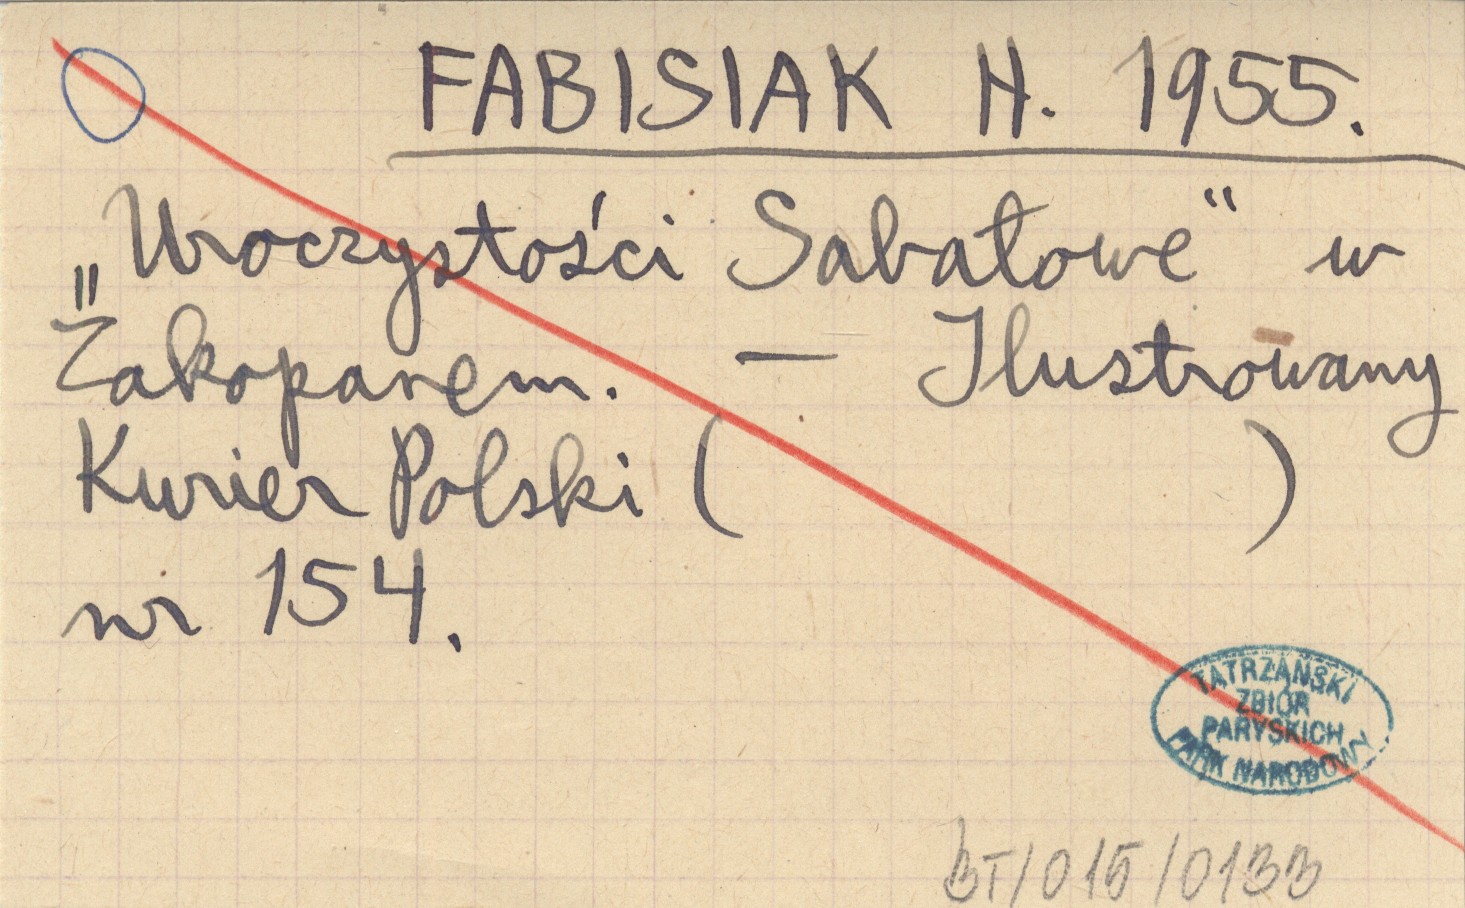 FABISIAK H. 1955.
„Uroczystości Sabałowe“ w
Zakopanem. — Ilustrowany
Kurier Polski ( )
nr 154.
TATRZAŃSKI
ZBIÓR
PARYSKICH
PARK NARODOWY
BT/015/0133